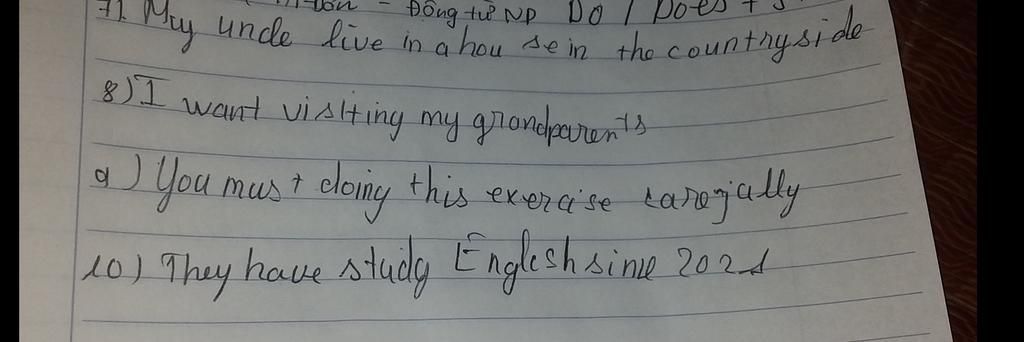 - Động từ NP Do / Does + S
7). My uncle live in a hou se in the countryside
8) I want visiting my grandparents
9) You must doing this exercise carefully
10) They have study English since 2021